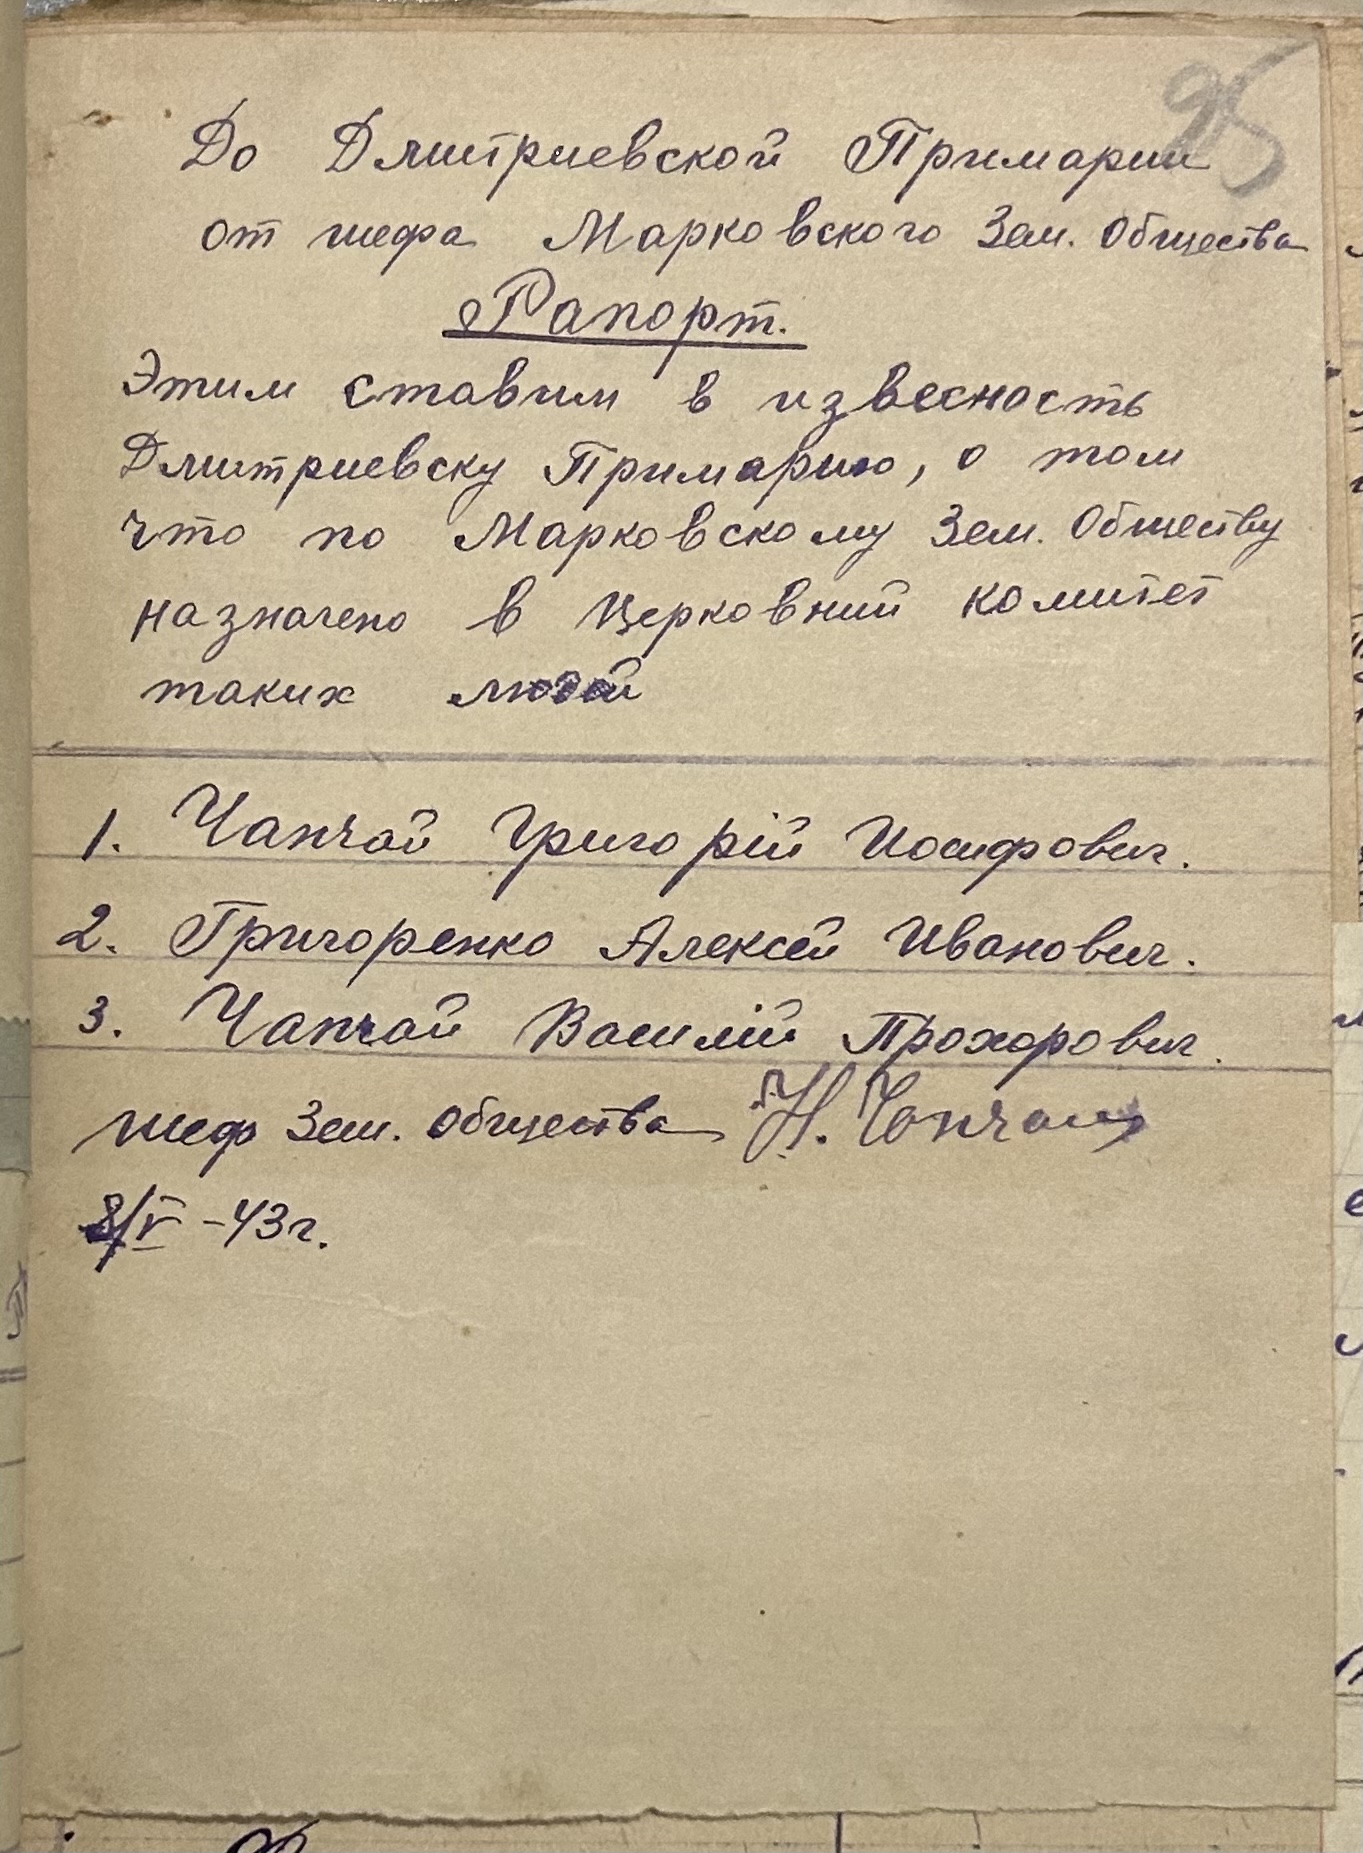 95
До Дмитриевской Примарии
от шефа Марковского Зем. Общества
Рапорт.
Этим ставим в извесность
Дмитриевску Примарию, о том
что по Марковскому Зем. Обществу
назначено в Церковний комитет
таких людей
1. Чапчай Григорій Иосифович.
2. Григоренко Алексей Иванович.
3. Чапчай Василій Прохорович.
шеф Зем. Общества Н. Чапчай
8/V -43г.